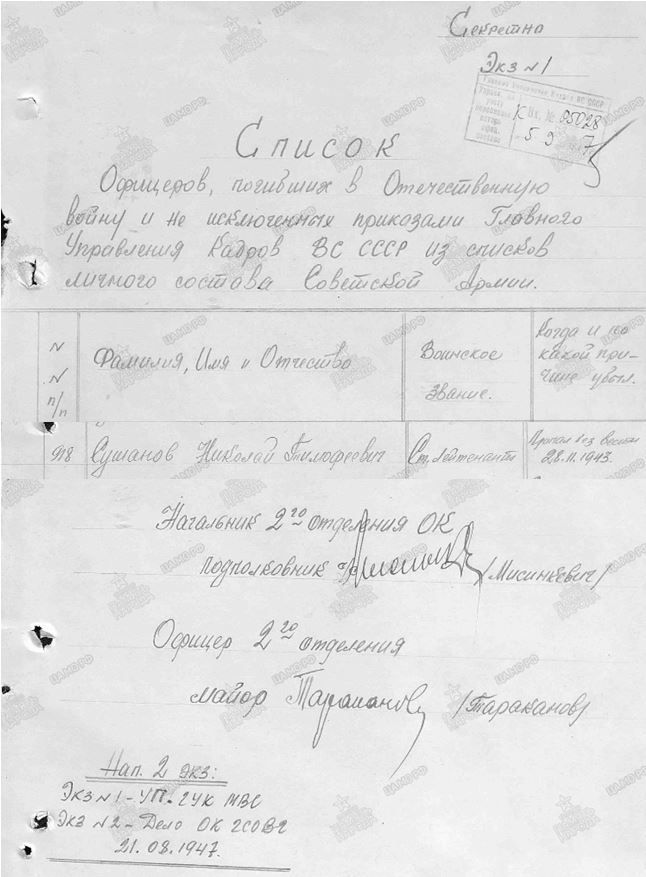 Секретно
Экз № 1
Вх. № 05028
5 9 7
Список
Офицеров, погибших в Отечественную
войну и не исключенных приказами Главного
Управления Кадров ВС СССР из списков
личного состава Советской Армии.
N N п/п
Фамилия, Имя и Отчество
Воинское звание.
Когда и по какой при- чине убыл.
918 Сушанов Николай Тимофеевич Ст. лейтенант Пропал без вести 28.11.1943.
Начальник 2го отделения ОК
подполковник /Мисинкевич/
Офицер 2го отделения
майор Тараканов /Тараканов/
Нап. 2 экз:
Экз №1 - УП - ГУК МВС
Экз №2 - Дело ОК ГСОВГ
21.08.1947.
ЦАМО РФ